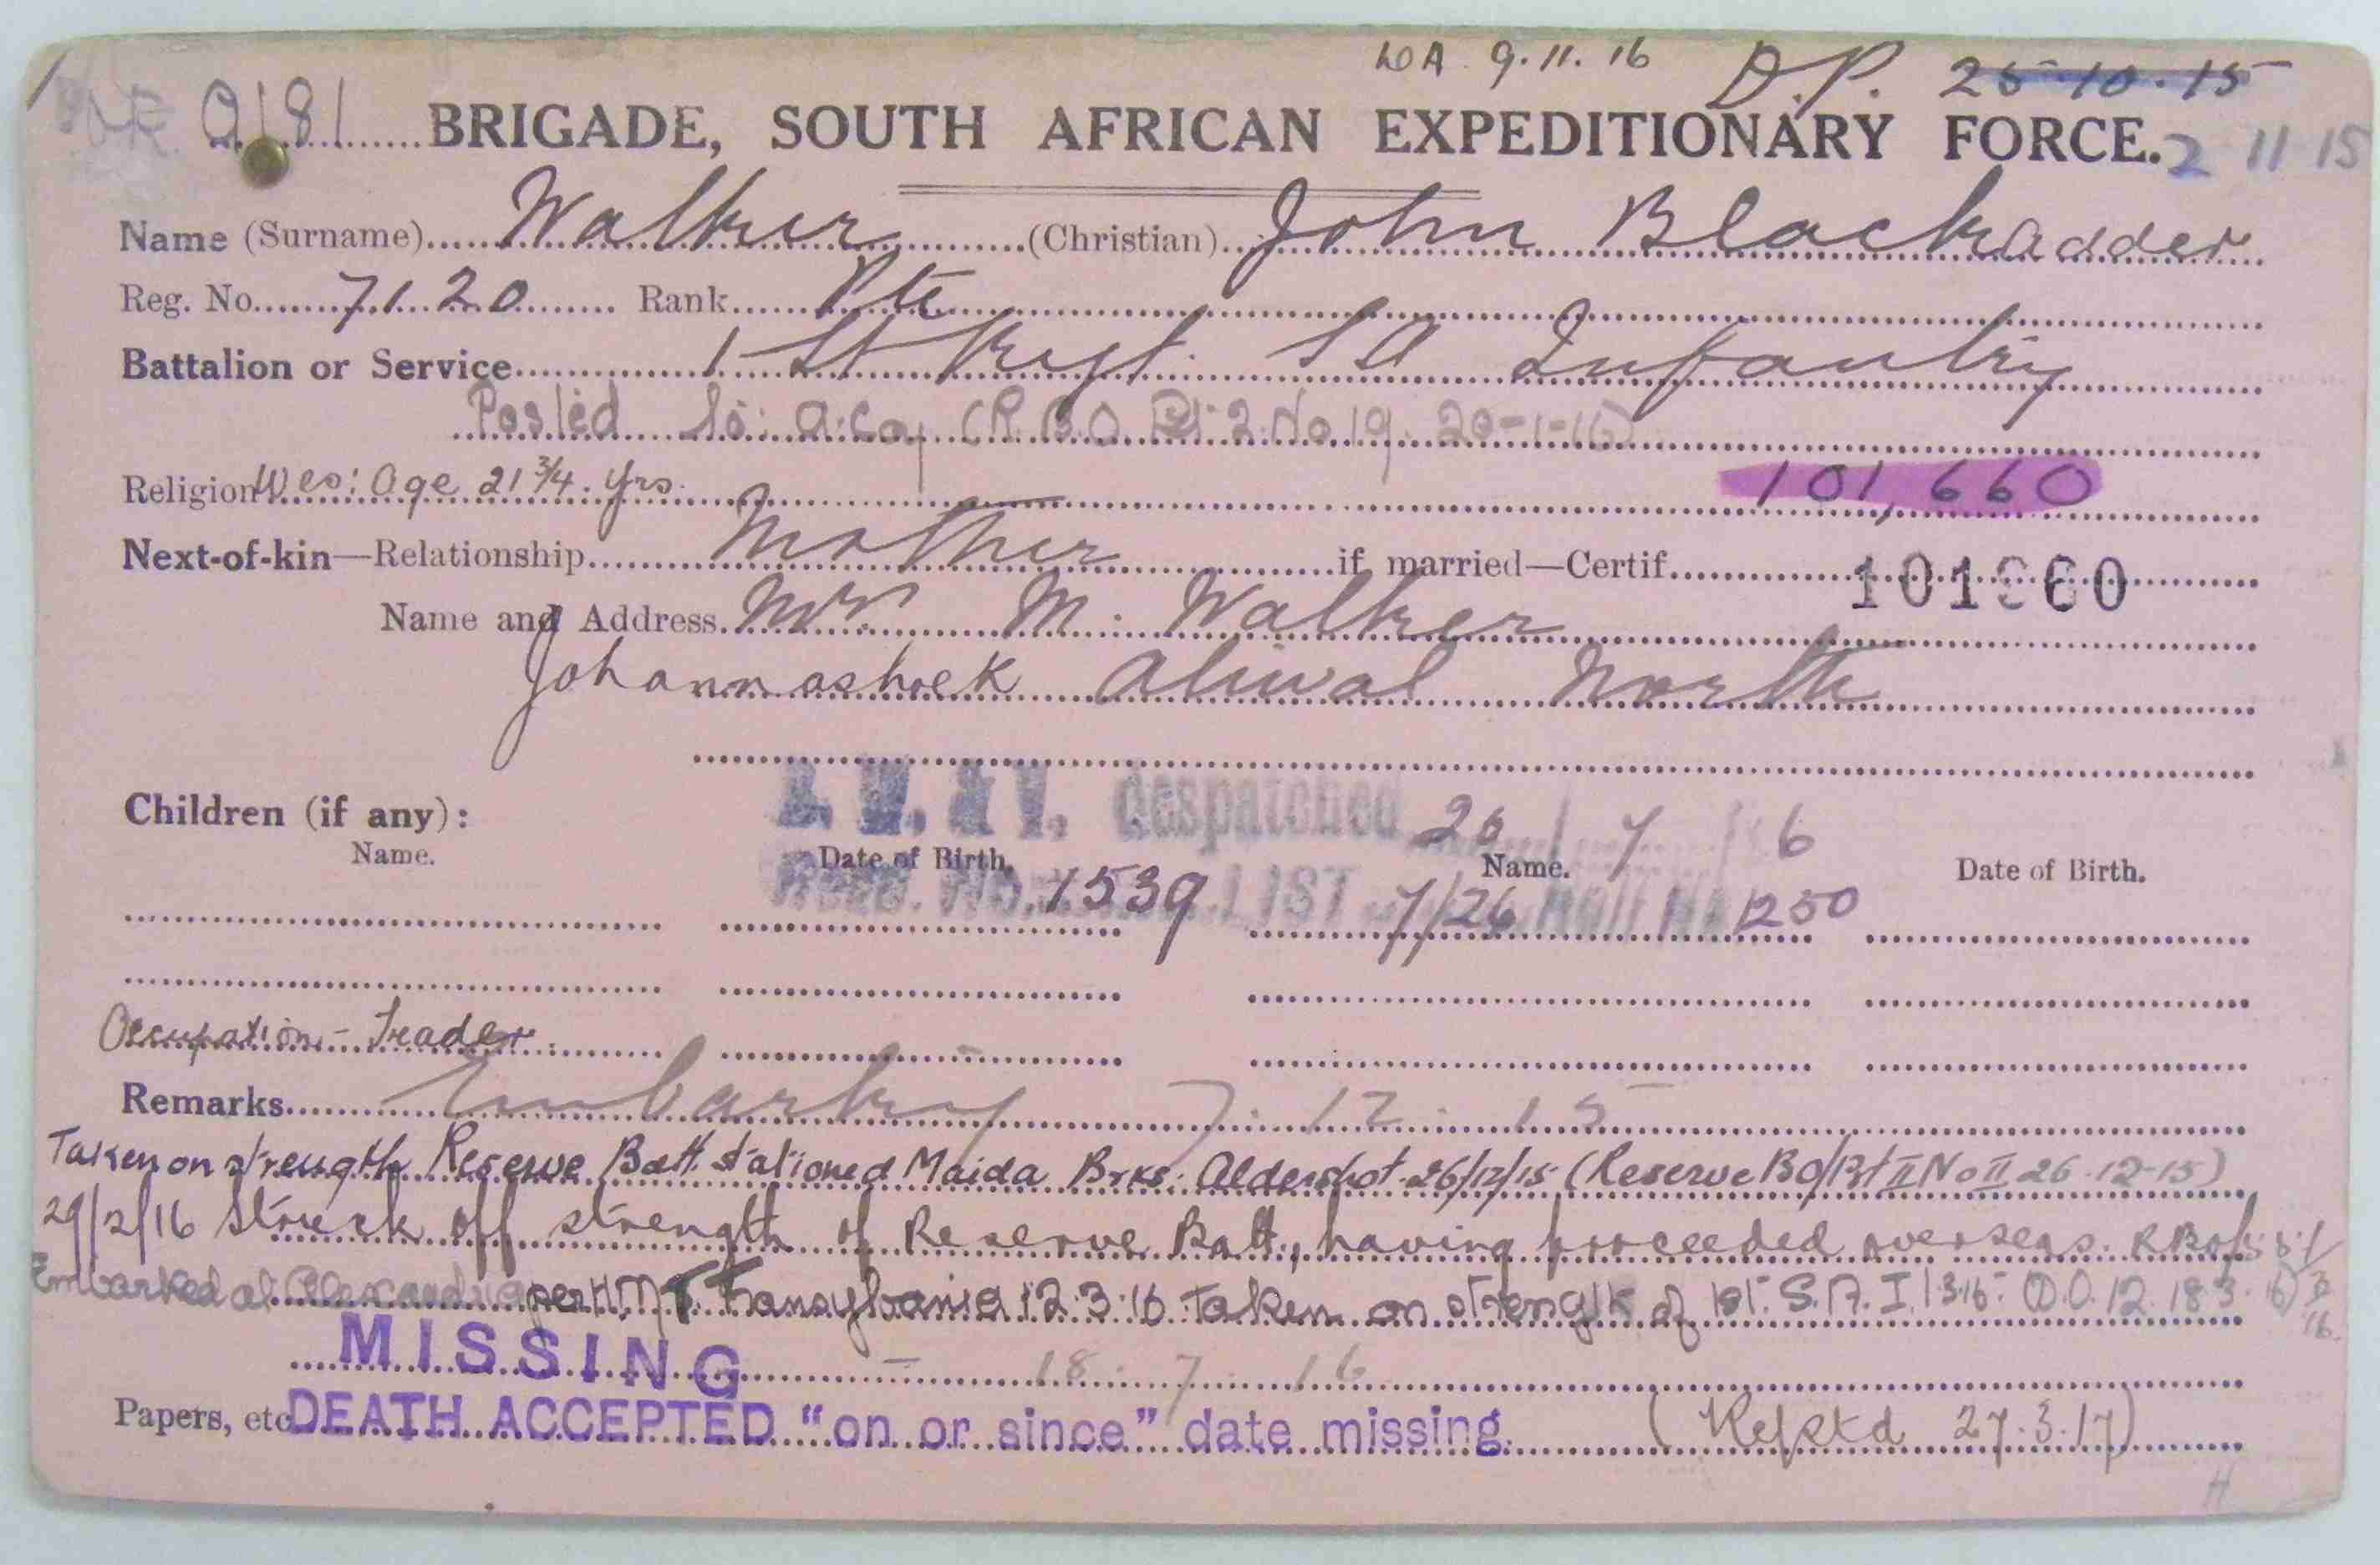 DA 9.11.16 D.P. 25-10-15
O/81 BRIGADE, SOUTH AFRICAN EXPEDITIONARY FORCE. 2 11 15
Name (Surname) Walker (Christian) John Blackadder
Reg. No. 7120 Rank Pte
Battalion or Service 1st Regt. SA Infantry
Posted to: A. Coy (R.B.O. Pt 2. No 19. 20-1-16)
Religion Wes: Age 21 3/4 yrs. 101,660
Next-of-kin—Relationship Mother if married—Certif. 101660
Name and Address. Mrs. M. Walker
Johannashoek Aliwal North
Children (if any): despatched 26/7/16
Name. Date of Birth. Name. Date of Birth.
No. 1539 LIST 7/26 Half No 1250
Occupation - Trader.
Remarks Embarked 7.12.15
Taken on strength Reserve Batt. stationed Maida Brks. Aldershot 26/12/15 (Reserve BO/Pt II No II 26-12-15)
29/2/16 Struck off strength of Reserve Batt., having proceeded overseas.
Embarked at Alexandria per HMT Transylvania 12.3.16. Taken on strength of 1st. S.A.I. 1.3.16. (D.O. 12. 18.3.16)
MISSING - 18.7.16
Papers, etc. DEATH ACCEPTED "on or since" date missing. (27.3.17)